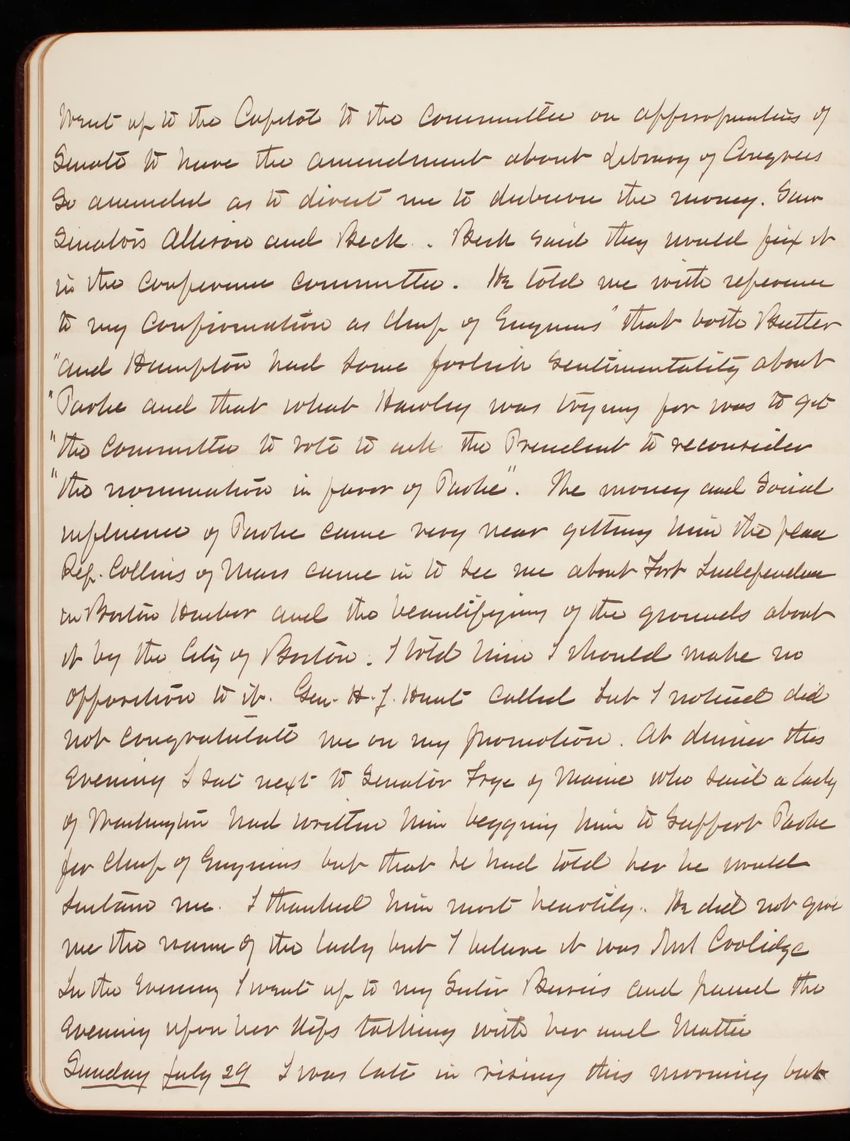 Went up to the Capitol to the Committee on appropriations of
Senate to have the amendment about Library of Congress
So amended as to direct me to disburse the money. Saw
Senators Allison and Beck. Beck said they would fix it
in the conference committee. He told me with reference
to my Confirmation as Chief of Engineers "that both Butler
"and Hampton had some foolish sentimentality about
"Parke and that what Hawley was trying for was to get
"the Committee to vote to ask the President to reconsider
"the nomination in favor of Parke". The money and social
influence of Parke came very near getting him the place
Rep. Collins of Mass came in to see me about Fort Independence
in Boston Harbor and the beautifying of the grounds about
it by the City of Boston. I told him I should make no
opposition to it. Gen. H. J. Hunt called but I noticed did
not congratulate me on my promotion. At dinner this
Evening I sat next to Senator Frye of Maine who said a lady
of Washington had written him begging him to support Parke
for Chief of Engineers but that he had told her he would
sustain me. I thanked him most heartily. He did not give
me the name of the lady but I believe it was Mrs Coolidge
In the Evening I went up to my Sister and passed the
Evening upon her steps talking with her and Mattie
Sunday July 29 I was late in rising this morning but